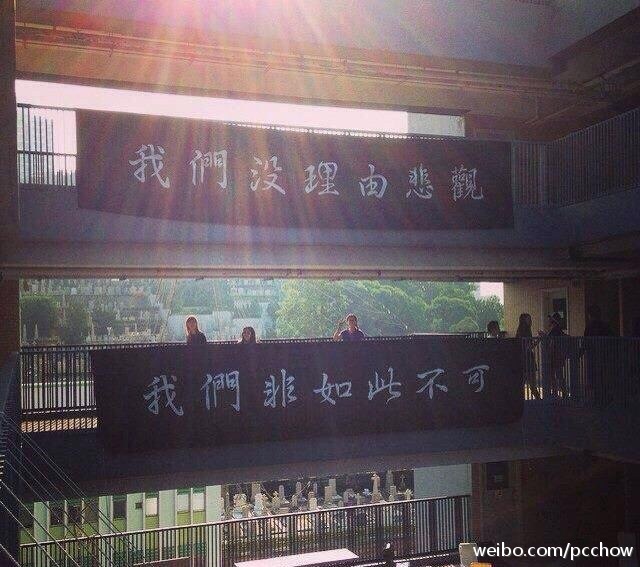 我們没理由悲觀
我們非如此不可
weibo.com/pcchow